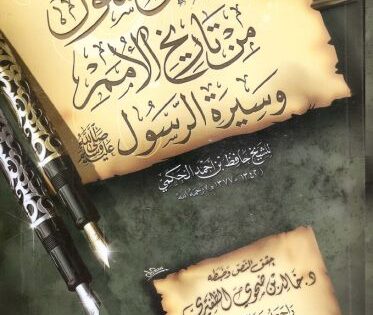 من تاريخ الأمم
وسيرة الرسول ﷺ
للشيخ حافظ بن أحمد الحكمي
(١٣٤٢ - ١٣٧٧) رحمه الله
حقق النص وضبطه
د. خالد بن ضحوي الظفيري